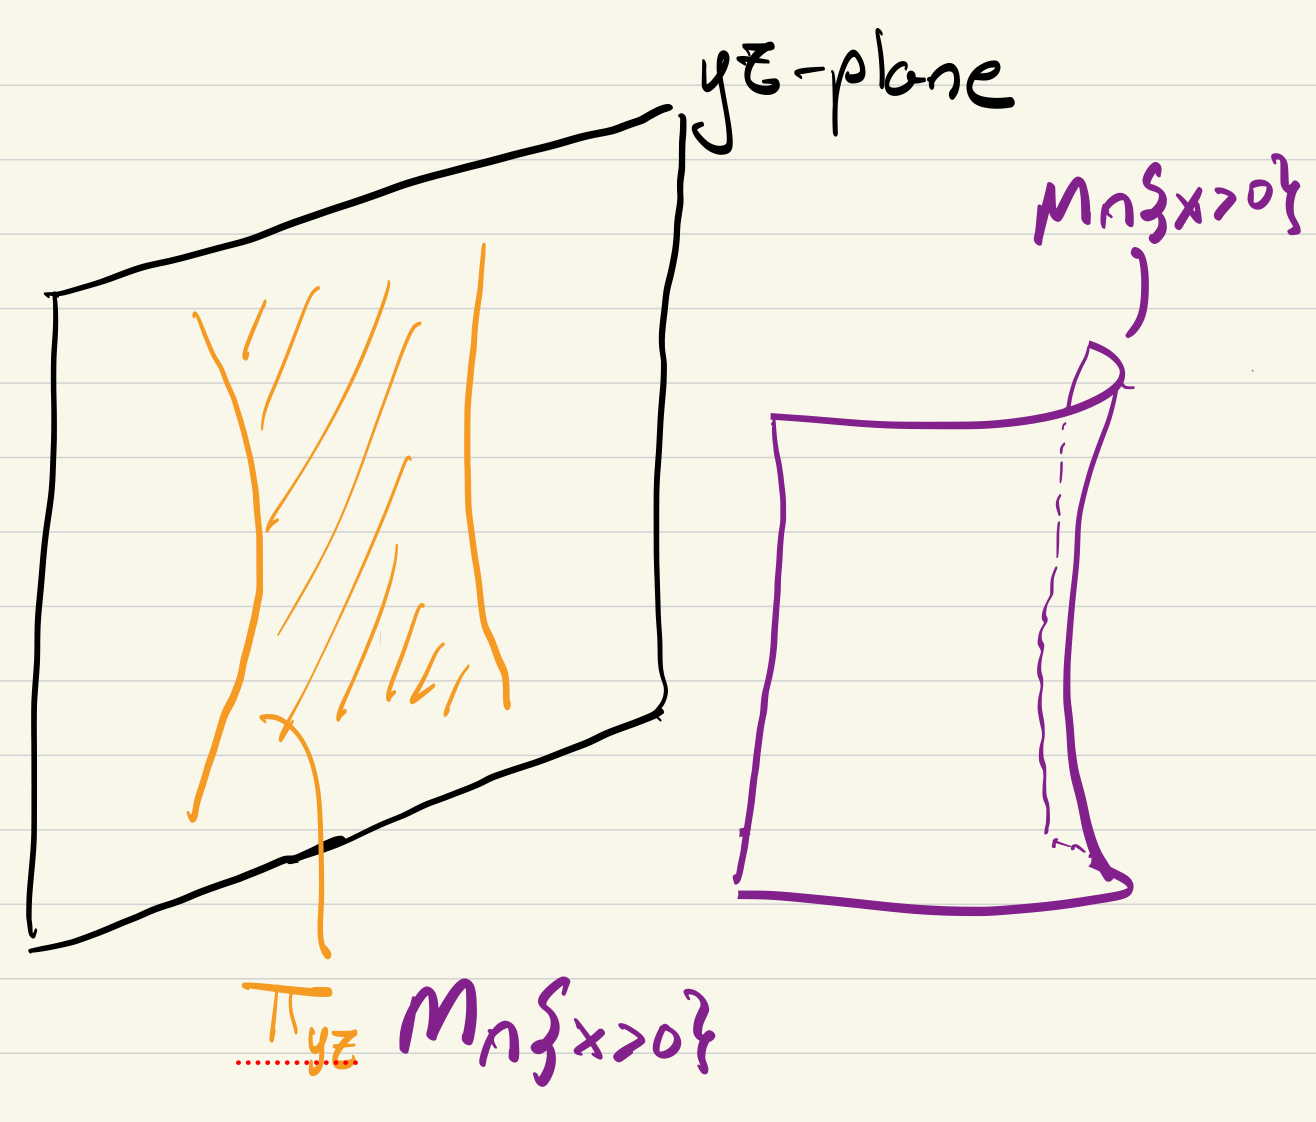 yz-plane
M∩{x>0}
π_yz M∩{x>0}